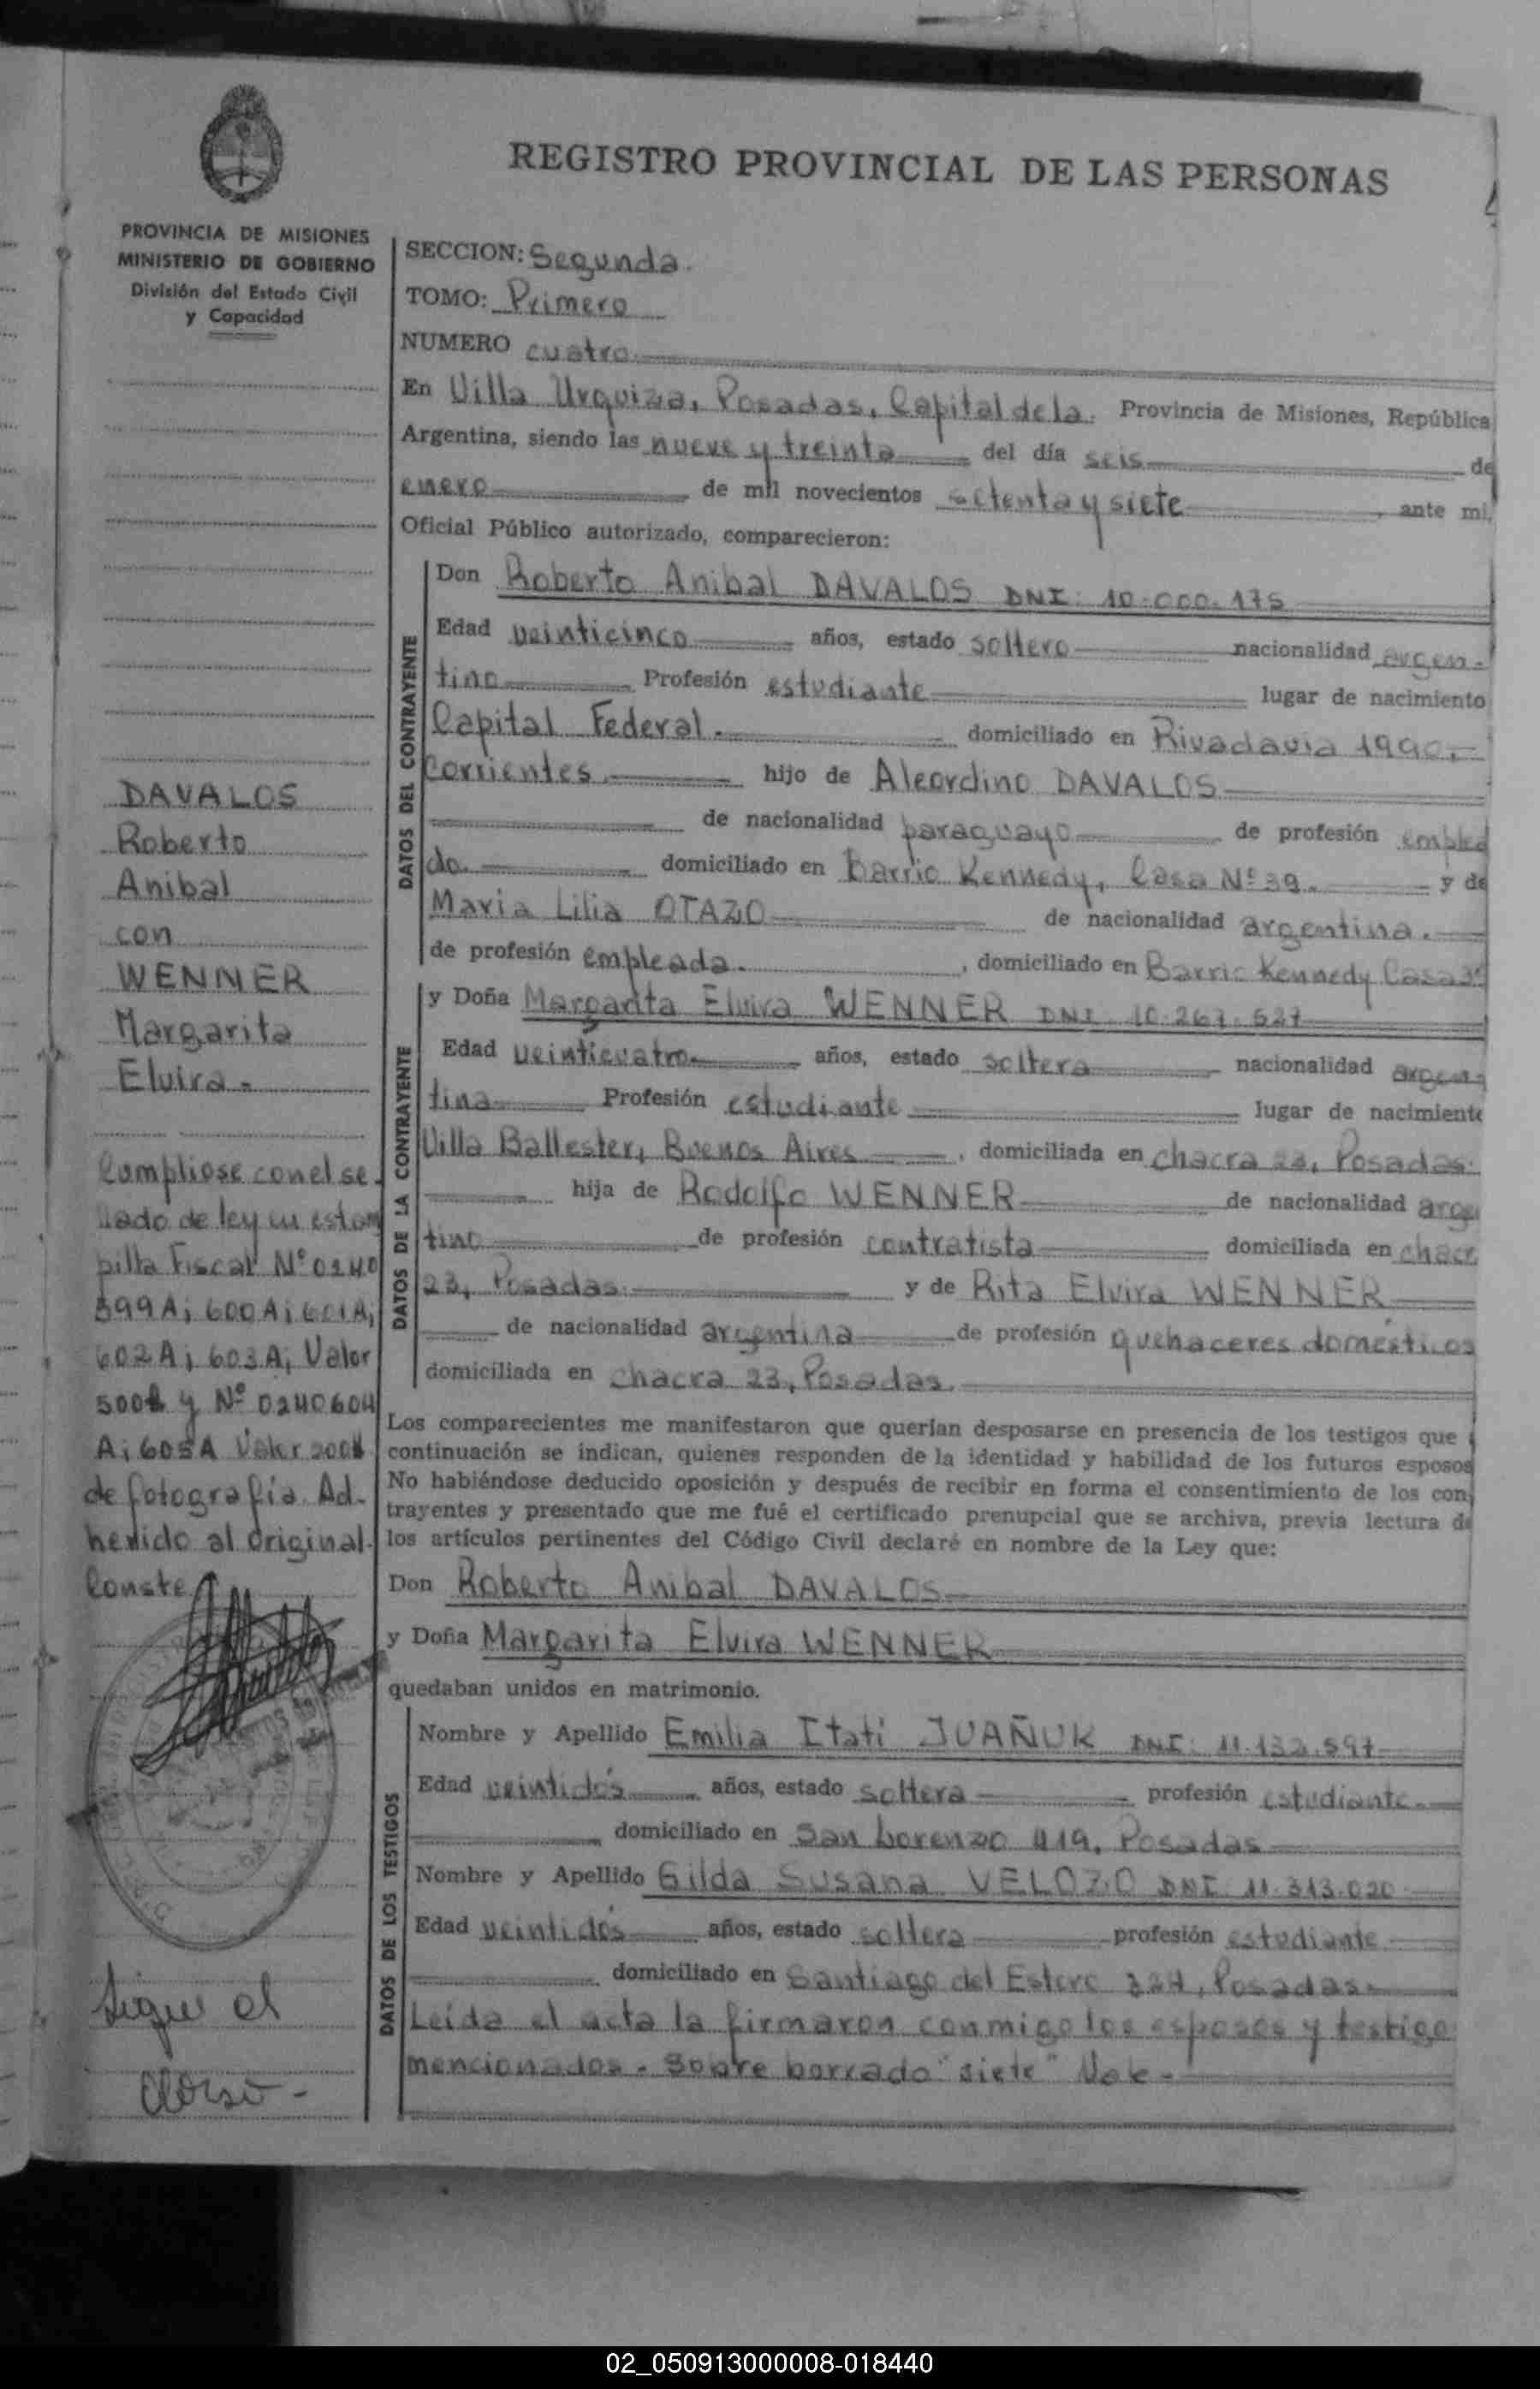 REGISTRO PROVINCIAL DE LAS PERSONAS
PROVINCIA DE MISIONES
MINISTERIO DE GOBIERNO
División del Estado Civil
y Capacidad
SECCION: Segunda.
TOMO: Primero
NUMERO cuatro.
En Villa Urquiza, Posadas, Capital de la. Provincia de Misiones, República
Argentina, siendo las nueve y treinta del día seis de
enero de mil novecientos setenta y siete, ante mi,
Oficial Público autorizado, comparecieron:
DATOS DEL CONTRAYENTE
Don Roberto Anibal DAVALOS DNI: 10.000.175
Edad veinticinco años, estado soltero nacionalidad argen-
tino Profesión estudiante lugar de nacimiento
Capital Federal. domiciliado en Rivadavia 1990.-
Corrientes hijo de Aleordino DAVALOS
de nacionalidad paraguayo de profesión emplea
do. domiciliado en Barrio Kennedy, Casa Nº 39. y de
Maria Lilia OTAZO de nacionalidad argentina.
de profesión empleada. , domiciliado en Barrio Kennedy Casa 39
DATOS DE LA CONTRAYENTE
y Doña Margarita Elvira WENNER DNI. 10.267.527
Edad veinticuatro. años, estado soltera nacionalidad argen
tina Profesión estudiante lugar de nacimiento
Villa Ballester, Buenos Aires , domiciliada en chacra 23, Posadas.
hija de Rodolfo WENNER de nacionalidad argen
tino de profesión contratista domiciliada en chacr
23, Posadas. y de Rita Elvira WENNER
de nacionalidad argentina de profesión quehaceres domésticos
domiciliada en chacra 23, Posadas.
Los comparecientes me manifestaron que querían desposarse en presencia de los testigos que
continuación se indican, quienes responden de la identidad y habilidad de los futuros esposos
No habiéndose deducido oposición y después de recibir en forma el consentimiento de los con
trayentes y presentado que me fué el certificado prenupcial que se archiva, previa lectura de
los artículos pertinentes del Código Civil declaré en nombre de la Ley que:
Don Roberto Anibal DAVALOS
y Doña Margarita Elvira WENNER
quedaban unidos en matrimonio.
DATOS DE LOS TESTIGOS
Nombre y Apellido Emilia Itati JUAÑUK DNI: 11.132.597
Edad veintidós años, estado soltera profesión estudiante
domiciliado en San Lorenzo 419, Posadas
Nombre y Apellido Gilda Susana VELOZO DNI 11.313.020
Edad veintidós años, estado soltera profesión estudiante
domiciliado en Santiago del Estero 324, Posadas
Leída el acta la firmaron conmigo los esposos y testigo
mencionados. Sobre borrado "siete" Vale.
DAVALOS
Roberto
Anibal
con
WENNER
Margarita
Elvira.
Cumpliose con el se-
llado de ley en estam
pilla Fiscal Nº 0240
599A; 600A; 601A;
602A; 603A; Valor
500$ y Nº 0240604
A; 605A Valor 200$
de fotografía. Ad-
herido al original.
Conste
Sigue al
dorso-
02_050913000008-018440